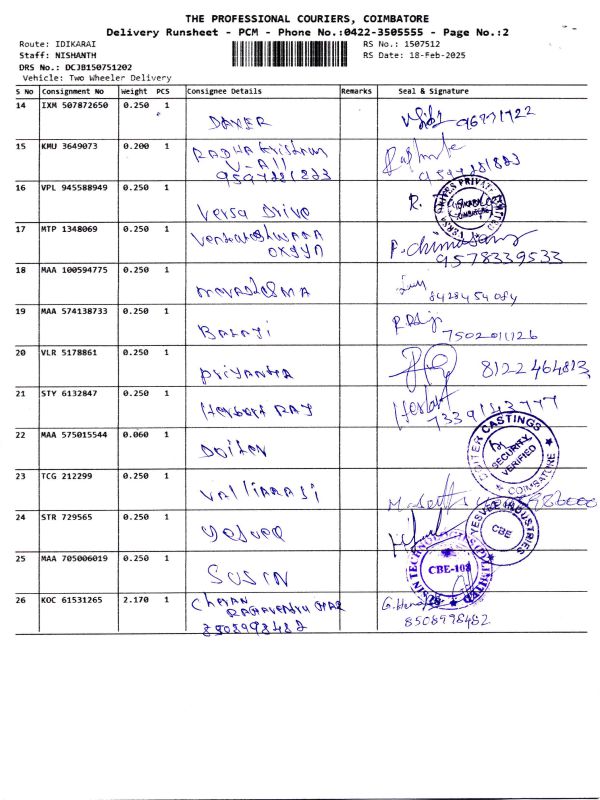 THE PROFESSIONAL COURIERS, COIMBATORE
Delivery Runsheet - PCM - Phone No.:0422-3505555 - Page No.:2
Route: IDIKARAI
RS No.: 1507512
Staff: NISHANTH
RS Date: 18-Feb-2025
DRS No.: DCJB150751202
Vehicle: Two Wheeler Delivery
S No Consignment No Weight PCS Consignee Details Remarks Seal & Signature
14 IXM 507872650 0.250 1
15 KMU 3649073 0.200 1 RADHA Krishnan
9597281823
9597281823
16 VPL 945588949 0.250 1 Versa Drive R.
17 MTP 1348069 0.250 1 Venkateshwara
OXYGN
9578339533
18 MAA 100594775 0.250 1
8428454084
19 MAA 574138733 0.250 1 BALAJI
7502011126
20 VLR 5178861 0.250 1 PRIYANKA 8122464813
21 STY 6132847 0.250 1 Herbert RAJ Herbert
22 MAA 575015544 0.060 1
CASTINGS
SECURITY
VERIFIED
COIMBATORE
23 TCG 212299 0.250 1 Valliarasi
24 STR 729565 0.250 1 Yesvee
YESVEE INDUSTRIES
CBE
25 MAA 705006019 0.250 1 SUSIN
SUSIN TECHNOLOGIES (P) LIMITED
CBE-108
26 KOC 61531265 2.170 1
8508998482
8508998482